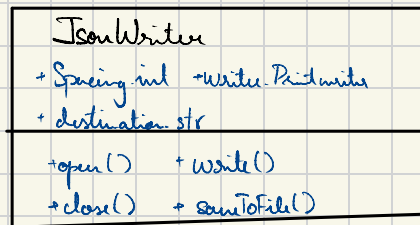 JsonWriter
+ Spacing: int +writer: Printwriter
+ destination: str
+open() + write()
+close() + saveToFile()